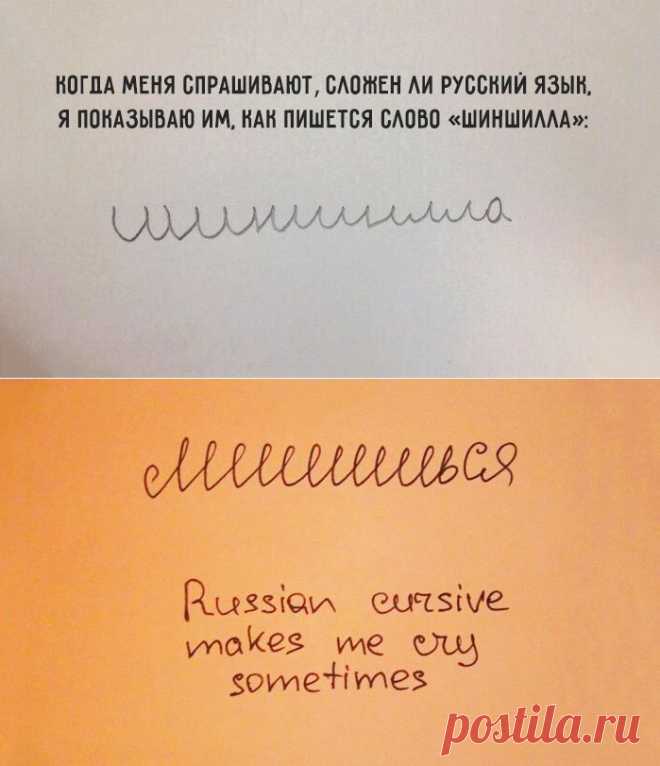 КОГДА МЕНЯ СПРАШИВАЮТ, СЛОЖЕН ЛИ РУССКИЙ ЯЗЫК,
Я ПОКАЗЫВАЮ ИМ, КАК ПИШЕТСЯ СЛОВО «ШИНШИЛЛА»:
шиншилла
Лишишься
Russian cursive
makes me cry
sometimes
postila.ru